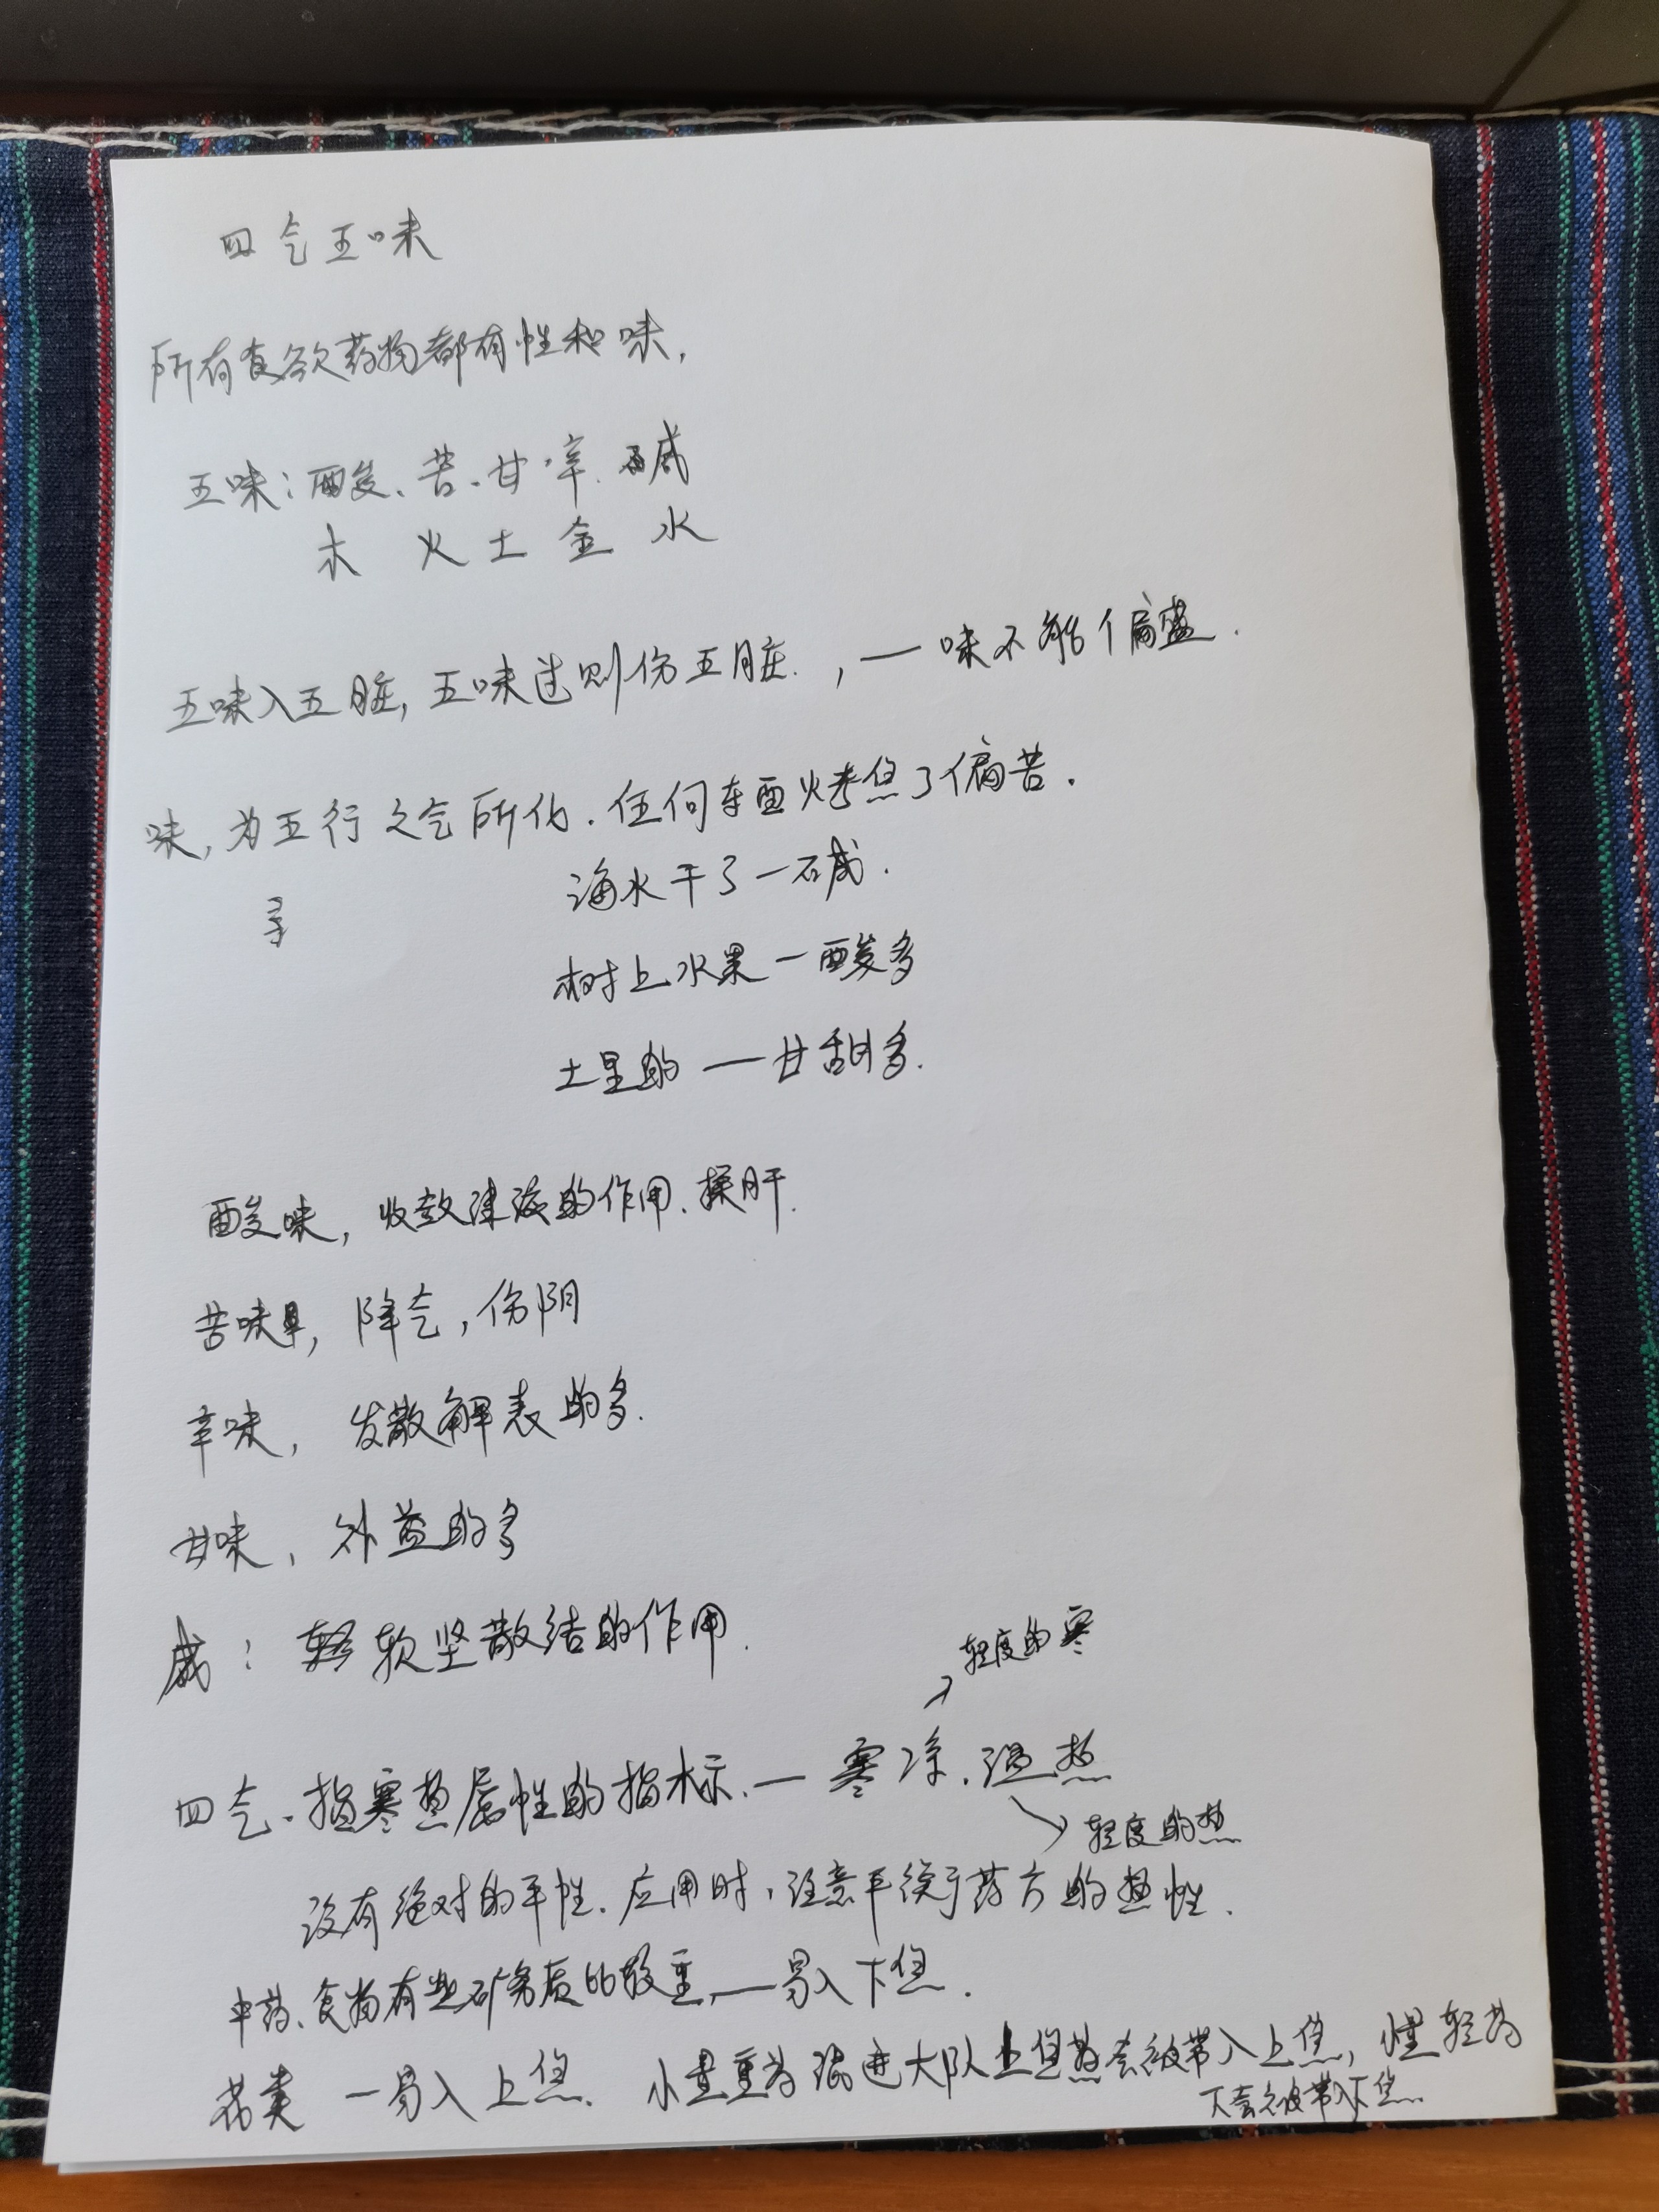 四气五味
所有食欲药物都有性和味,
五味:酸、苦、甘、辛、碱
木 火 土 金 水
五味入五脏,五味过则伤五脏.,一味不能个偏盛.
味,为五行之气所化.任何东西烤焦了偏苦.
海水干了一碱.
树上水果一酸多
土里的一甘甜多.
酸味,收敛津液的作用、揉肝.
苦味,降气,伤阴
辛味,发散解表的多.
甘味,补益的多
咸:软坚散结的作用.
轻度的寒
四气、指寒热属性的指标、一寒凉、温热
轻度的热
没有绝对的平性.应用时,注意平衡药方的热性.
中药、食物有些矿务质的较重,一易入下焦.
花类一易入上焦、小量重药混进大队上焦药会被带入上焦,小量轻药
下会被带入下焦